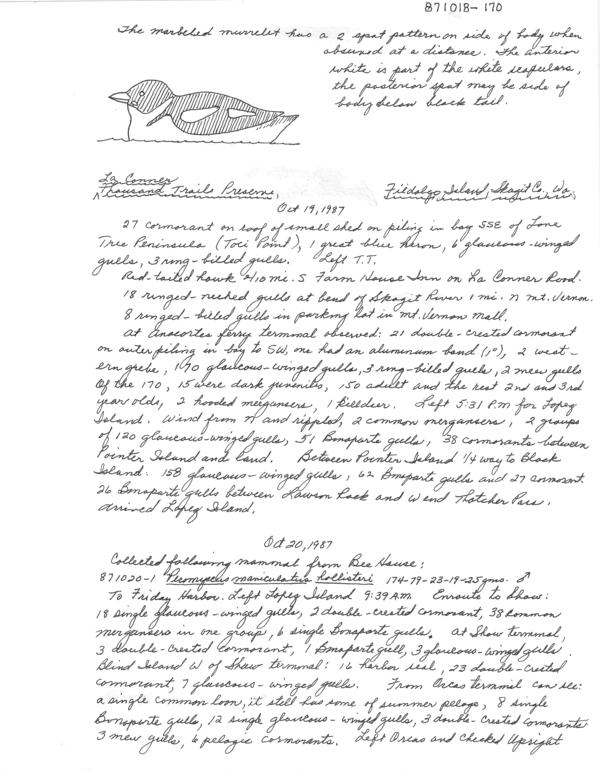 871018-170
The marbeled murrelet has a 2 spot pattern on side of body when
observed at a distance. The anterior
white is part of the white scapulars,
the posterior spot may be side of
body below black tail.
La Conner
Thousand Trails Preserve, Fidalgo Island, Skagit Co., Wa.
Oct 19, 1987
27 cormorant on roof of small shed on piling in bay SSE of Lone
Tree Peninsula (Toci Point), 1 great blue heron, 6 glaucous-winged
gulls, 3 ring-billed gulls. Left T.T.
Red-tailed hawk 4/10 mi. S Farm House Inn on La Conner Road.
18 ringed-necked gulls at bend of Skagit River 1 mi. N Mt. Vernon.
8 ringed-billed gulls in parking lot in Mt. Vernon Mall.
At Anacortes ferry terminal observed: 21 double-crested cormorant
on outer piling in bay to SW, one had an aluminum band (1"), 2 west-
ern grebe, 170 glaucous-winged gulls, 3 ring-billed gulls, 2 mew gulls
Of the 170, 15 were dark juveniles, 150 adult and the rest 2nd and 3rd
year olds, 2 hooded mergansers, 1 killdier. Left 5:31 P.M for Lopez
Island. Wind from N and rippled, 2 common mergansers, 2 groups
of 120 glaucous-winged gulls, 51 Bonaparte gulls, 38 cormorants between
Pointer Island and land. Between Pointer Island 1/4 way to Black
Island: 158 glaucous-winged gulls, 62 Bonaparte gulls and 27 cormorant.
26 Bonaparte gulls between Lawson Rock and W end Thatcher Pass.
Arrived Lopez Island.
Oct 20, 1987
Collected following mammal from Bee House:
871020-1 Peromyscus maniculatus hollisteri 174-79-23-19-25gms. ♂
To Friday Harbor. Left Lopez Island 9:39 A.M Enroute to Shaw:
18 single glaucous-winged gulls, 2 double-crested cormorant, 38 common
mergansers in one group, 6 single Bonaparte gulls. At Shaw terminal,
3 double-crested cormorant, 1 Bonaparte gull, 3 glaucous-winged gulls.
Blind Island W of Shaw terminal: 16 harbor seal, 23 double-crested
cormorant, 7 glaucous-winged gulls. From Orcas terminal can see:
a single common loon, it still has some of summer pelage, 8 single
Bonaparte gulls, 12 single glaucous-winged gulls, 3 double-crested cormorants
3 mew gulls, 6 pelagic cormorants. Left Orcas and Checked Upright